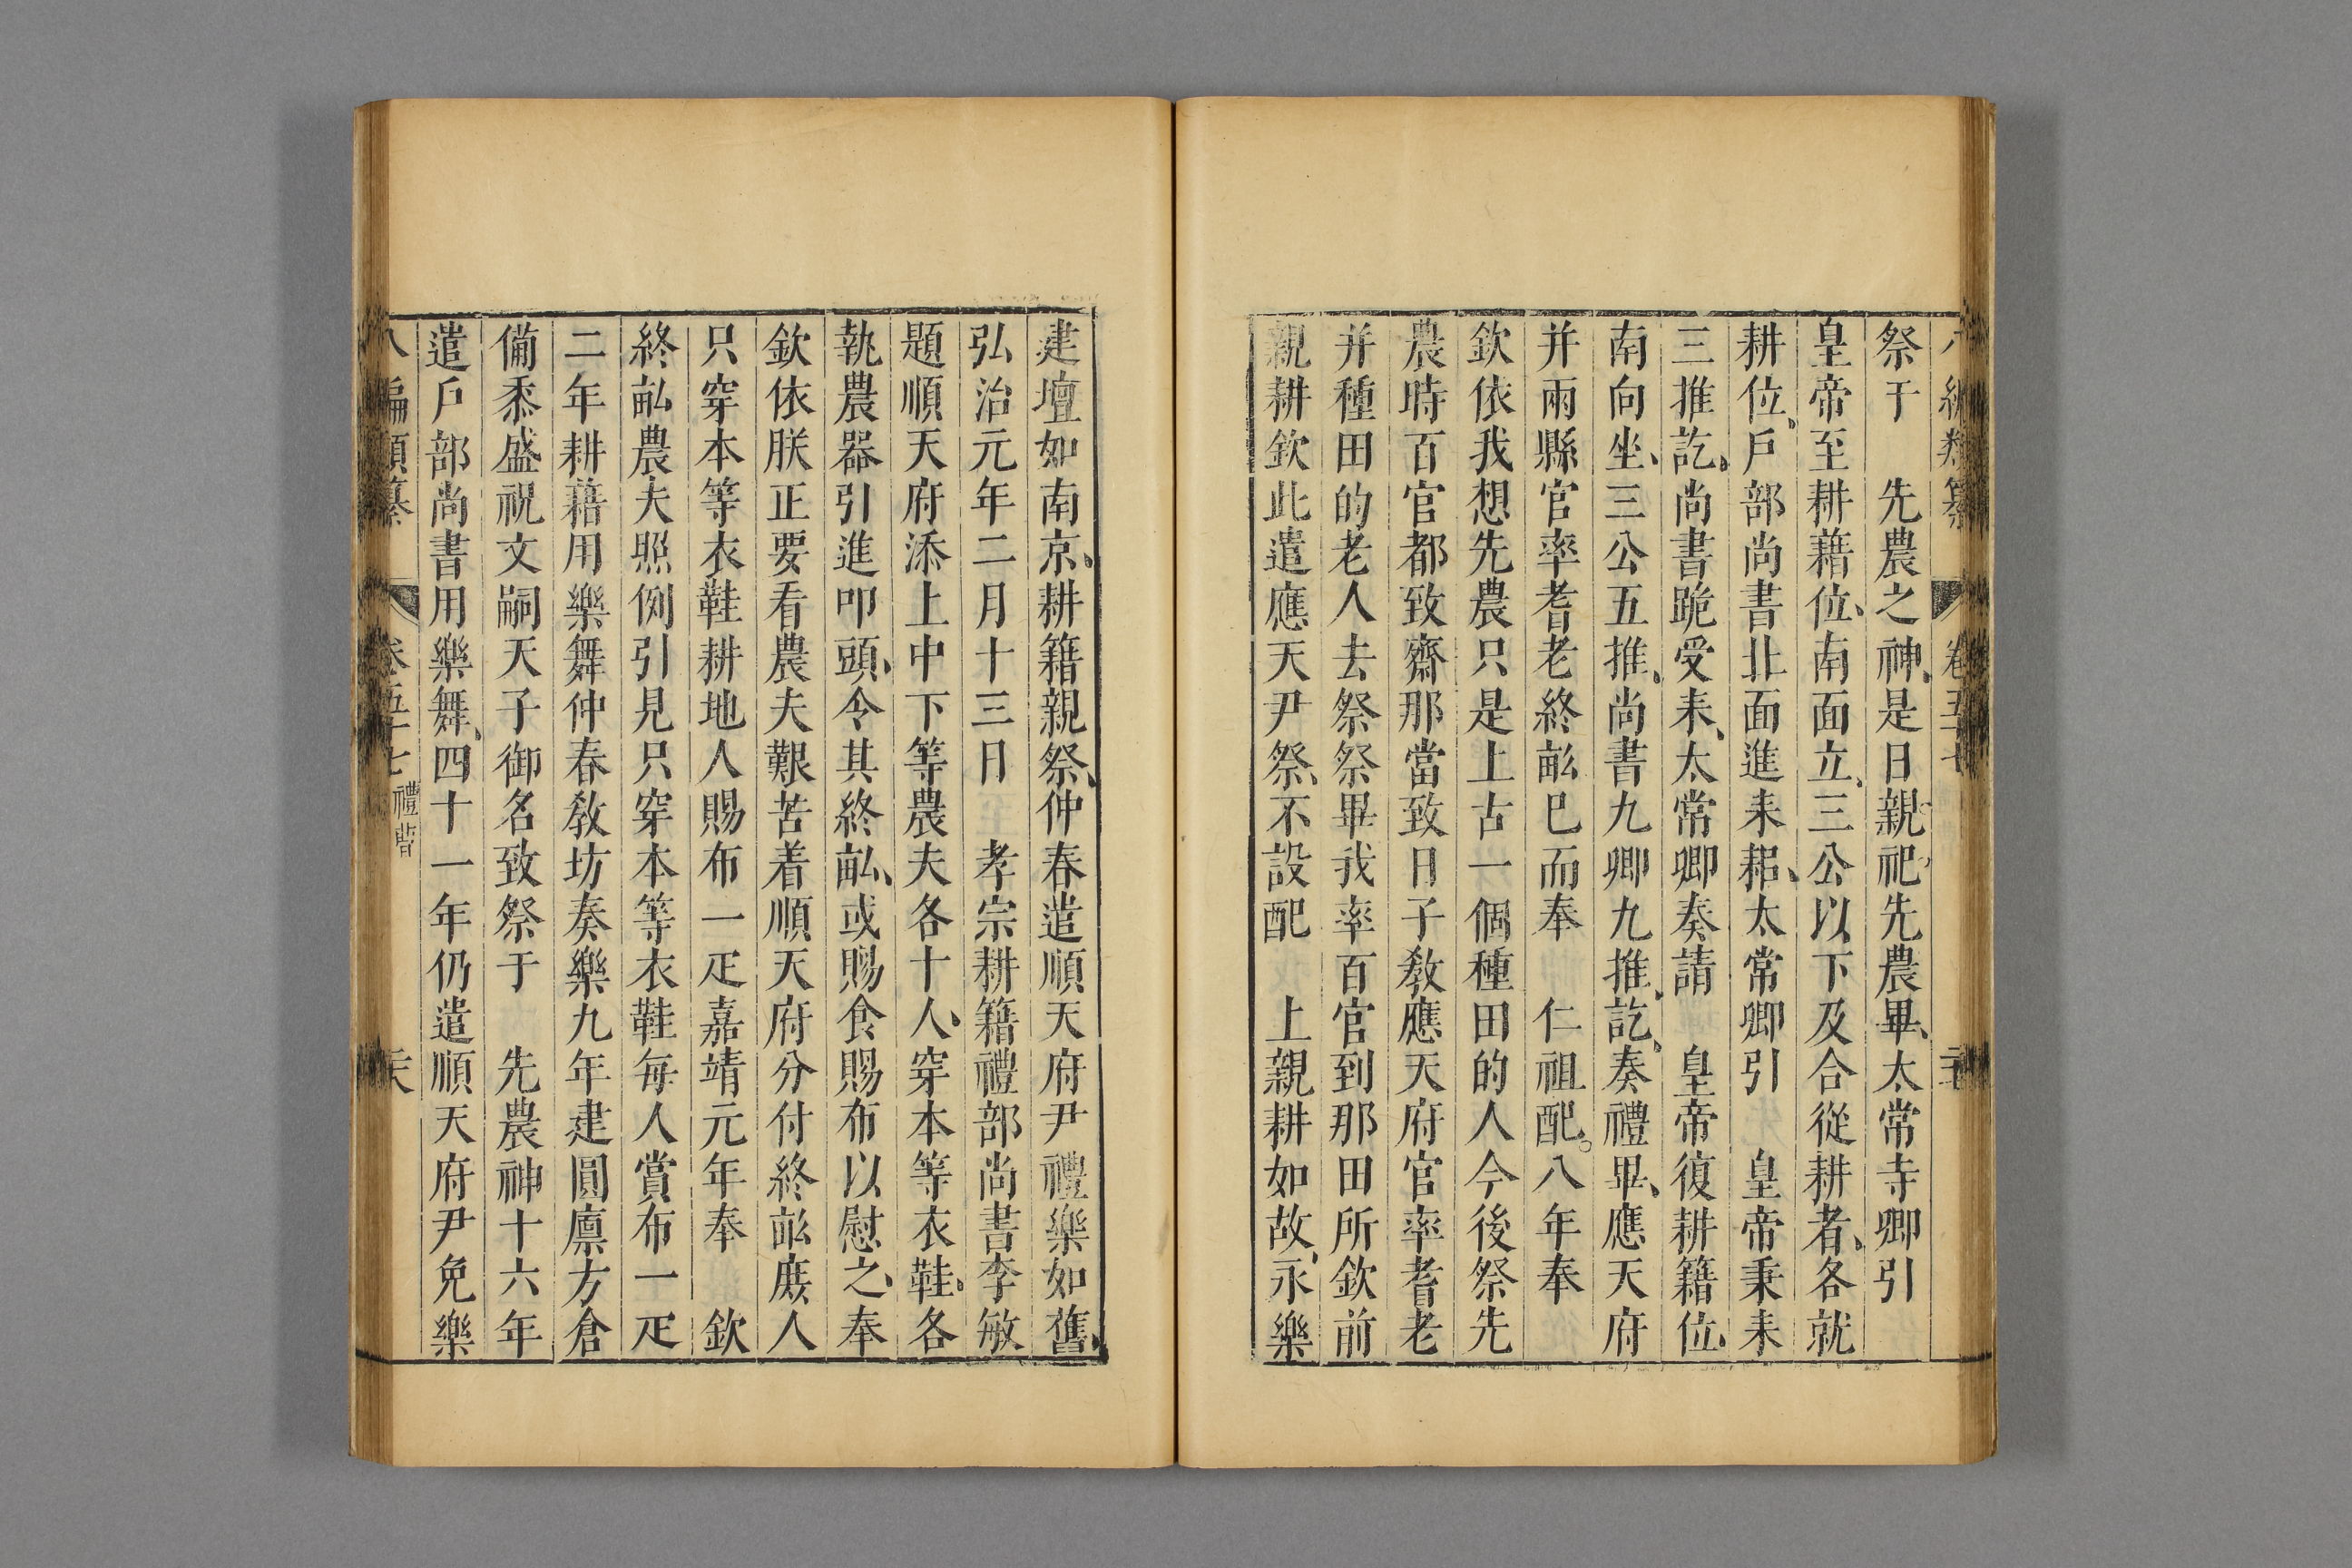 祭于　先農之神是日親祀先農畢太常寺卿引
皇帝至耕藉位南面立三公以下及合從耕者各就
耕位戶部尚書北面進耒耜太常卿引　皇帝秉耒
三推訖尚書跪受耒太常卿奏請　皇帝復耕籍位
南向坐三公五推尚書九卿九推訖奏禮畢應天府
并兩縣官率耆老終畝已而奉　仁祖配○八年奉
欽依我想先農只是上古一個種田的人今後祭先
農時百官都致齋那當致日子教應天府官率耆老
并種田的老人去祭祭畢我率百官到那田所欽前
親耕欽此遣應天尹祭不設配　上親耕如故永樂
建壇如南京耕籍親祭仲春遣順天府尹禮樂如舊
弘治元年二月十三日　孝宗耕籍禮部尚書李敏
題順天府添上中下等農夫各十人穿本等衣鞋各
執農器引進叩頭令其終畝或賜食賜布以慰之奉
欽依朕正要看農夫艱苦着順天府分付終畝庶人
只穿本等衣鞋耕地人賜布一疋嘉靖元年奉　欽
終畝農夫照例引見只穿本等衣鞋每人賞布一疋
二年耕藉用樂舞仲春教坊奏樂九年建圓廩方倉
備黍盛祝文嗣天子御名致祭于　先農神十六年
遣戶部尚書用樂舞四十一年仍遣順天府尹免樂
八編類纂　卷五十七　禮曹